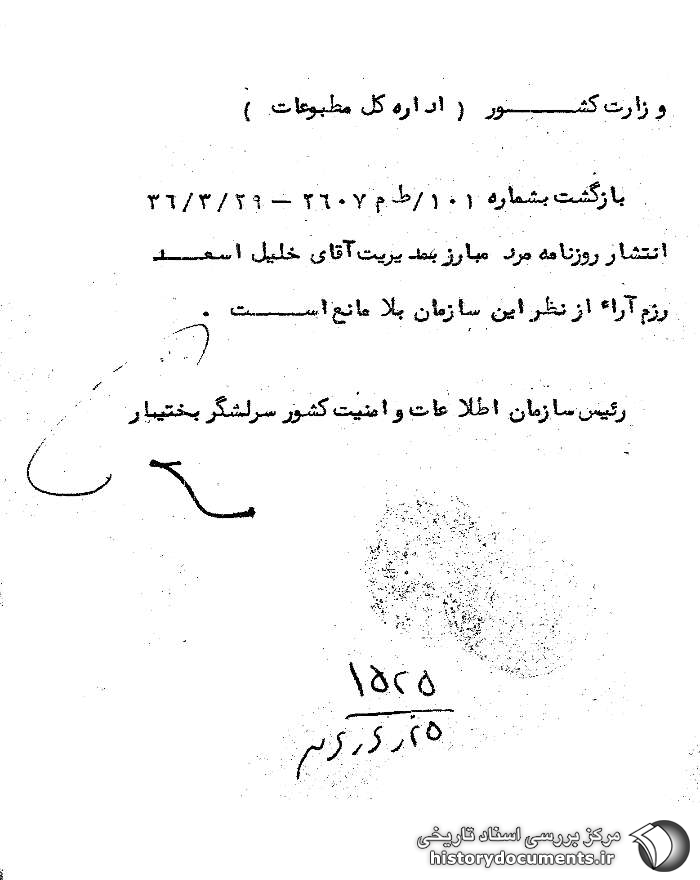 وزارت کشـــــور ( اداره کل مطبوعات )
بازگشت بشماره ۱۰۱/ط م ۲۶۰۷ – ۳۶/۳/۲۹
انتشار روزنامه مرد مبارز بمدیریت آقای خلیل اسعـــد
رزم آراء از نظر این سازمان بلا مانع اســـــت .
رئیس سازمان اطلاعات و امنیت کشور سرلشگر بختیار
۱۵۲۵
۳۶٫۴٫۲۵
مرکز بررسی اسناد تاریخی
historydocuments.ir